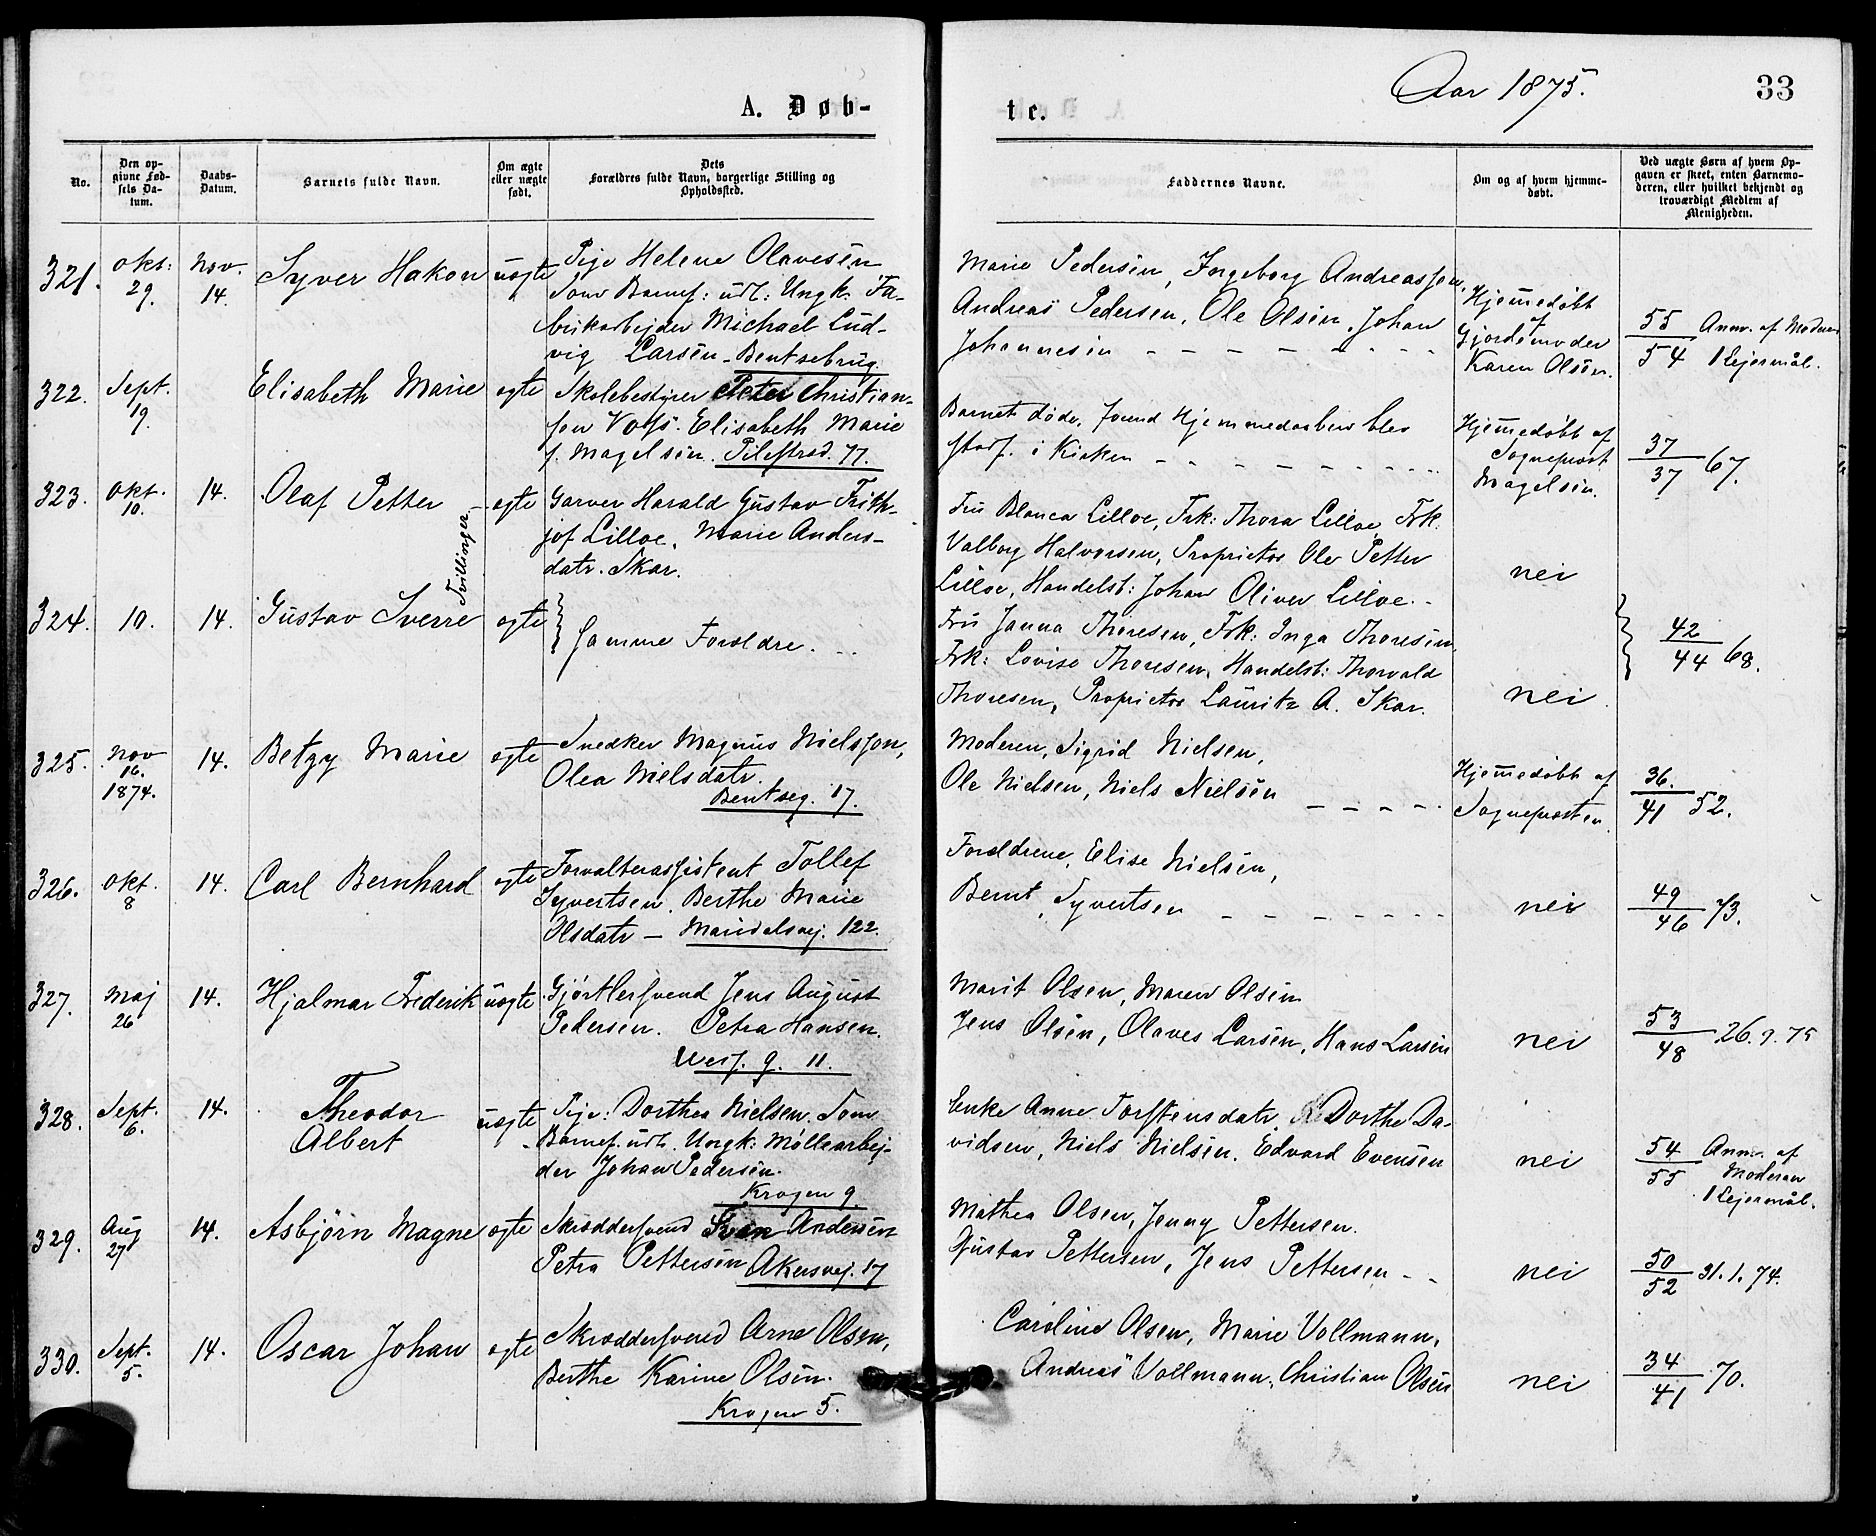 Aar 1875.
33
A. Døb-
te.
No.
Den op-
givne Fød-
sels Da-
tum.
Daabs-
Datum.
Barnets fulde Navn.
Om ægte
eller uægte
født.
Dets
Forældres fulde Navn, borgerlige Stilling og
Opholdssted.
Faddernes Navne.
Om og af hvem hjemme-
døbt.
Ved uægte Børn af hvem Op-
gaven er skeet, enten Barnemo-
deren, eller hvilket bekjendt og
troværdigt Medlem af
Menigheden.
321.
Okt:
29.
Nov.
14.
Syver Hakon
uægte
Pige Helene Olavesen
Som Barnef: udl: Ungk. Fa-
brikarbejder Michael Lud-
vig Larsen - Bentsebrug.
Marie Pedersen, Ingeborg Andreassen,
Andreas Pedersen, Ole Olsen, Johan
Johannesen
Hjemmedøbt
af
Gjordemoder
Karen Olsen.
55
54
Anm. af Moderen
1 Lejermål.
322.
Sept.
19.
Elisabeth Marie
ægte
Skolebestyrer Peter Christian-
sen Voss. Elisabeth Marie
f. Magelsen. Pilestræd. 77.
Barnet døde, forend Hjemmedaaben blev
stadf. i Kirken
Hjemmedøbt af
Sognepræst
Magelsen.
37
37
67.
323.
Okt.
10.
14.
Olaf Petter
Tvillinger
ægte
Garver Harald Gustav Frith-
jof Lilloe, Marie Anders-
datr. Skar.
Fru Blanca Lilloe, Frk: Thora Lilloe, Frk.
Valborg Halvorsen, Proprietær Ole Petter
Lilloe, Handelsb: Johan Oliver Lilloe.
nei
324.
10.
14.
Gustav Sverre
ægte
Samme Forældre.
Fru Janna Thoresen, Frk: Inga Thoresen,
Frk: Lovise Thoresen, Handelsb: Thorvald
Thoresen, Proprietær Lauritz A. Skar.
nei
42
44
68.
325.
Nov
16.
1874.
14.
Betzy Marie
ægte
Snedker Magnus Nielssen,
Olea Nielsdatr.
Bentseg. 17.
Moderen, Sigrid Nielsen,
Ole Nielsen, Niels Nielsen
Hjemmedøbt af
Sognepræsten
36.
41
52.
326.
Okt.
8
14.
Carl Bernhard
ægte
Forvalterassistent Tollef
Syvertsen, Berthe Marie
Olsdatr - Maridalsvej. 122.
Forældrene, Elise Nielsen,
Bernt Syvertsen
nei
49
46
73.
327.
Maj
26
14.
Hjalmar Frederik
uægte
Gjørtlersvend Jens August
Pedersen. Petra Hansen.
Wess. g. 11.
Marit Olsen, Maren Olsen
Jens Olsen, Olaves Larsen, Hans Larsen
nei
53
48
26.9.75
328.
Sept.
6.
14.
Theodor
Albert
uægte
Pige: Dorthea Nielsen. Som
Barnef. udl. Ungk: Møllearbej-
der Johan Pedersen.
Krogen 9.
Enke Anne Torstensdatr, Dorthe Da-
vidsen, Niels Nielsen, Edvard Evensen
nei
54
55
Anm. af
Moderen
1 Lejermål.
329.
Aug
27
14.
Asbjørn Magne
ægte
Skræddersvend Sven Andersen
Petra Pettersen Akersvej. 17
Mathea Olsen, Jenny Pettersen.
Gustav Pettersen, Jens Pettersen
nei
50
52
31.1.74.
330.
Sept.
5.
14.
Oscar Johan
ægte
Skræddersvend Arne Olsen,
Berthe Karine Olsen.
Krogen 5.
Caroline Olsen, Marie Vollmann,
Andreas Vollmann, Christian Olsen
nei
34
41
70.